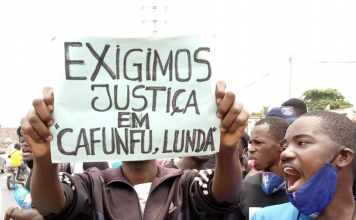 EXIGIMOS
JUSTIÇA
EM
"CAFUNFU, LUNDA"